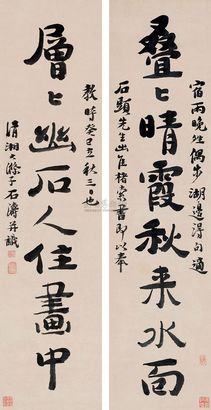 叠〻晴霞秋来水面
宿雨晚烟偶步湖邊得句適
石顛先生出隹楮索書即以奉
層〻幽石人住畫中
教時癸巳立秋三日也
清湘大滌子石濤并識